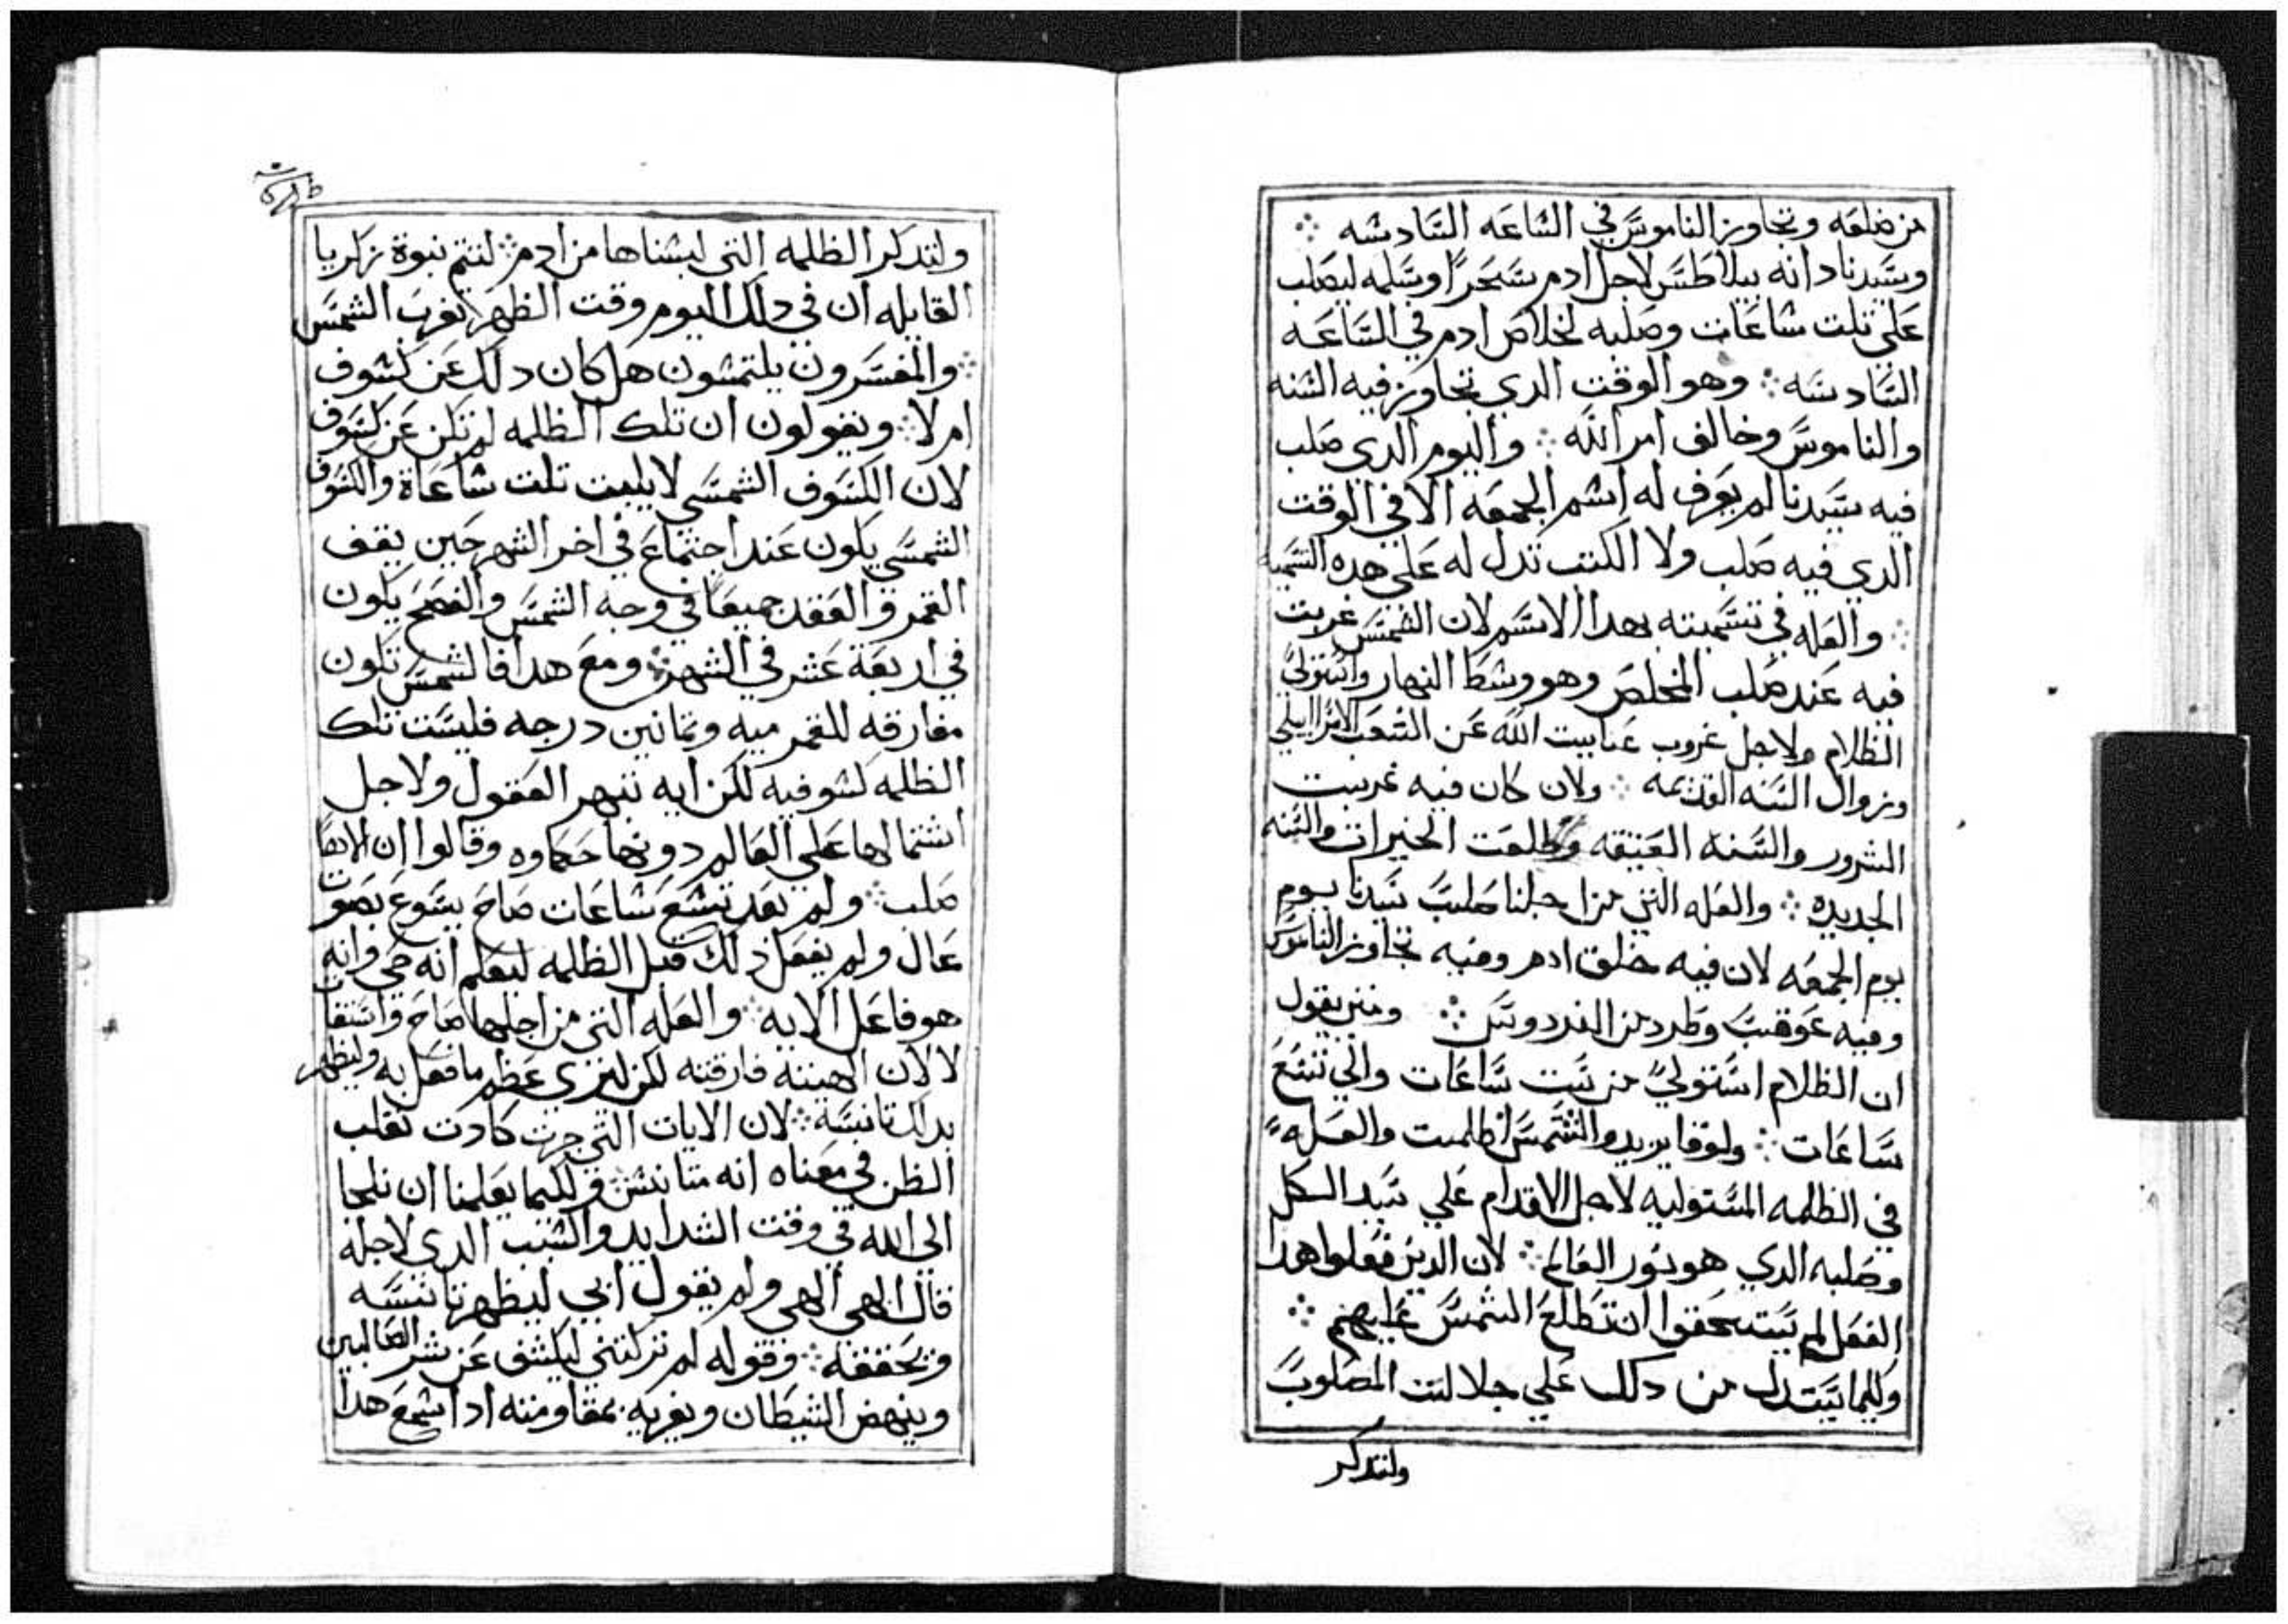 من ضلعه وتجاوز الناموس في الساعه السادسه
وسيدنا دانه بيلاطس لاجل ادم سحرًا وسلمه ليصلب
علي تلت ساعات وصلبه لخلاص ادم في الساعه
السادسه وهو الوقت الدي تجاوز فيه السنه
والناموس وخالف امر الله واليوم الدي صلب
فيه سيدنا لم يعرف له اسم الجمعه الا في الوقت
الدي فيه صلب ولا الكتب تدل له علي هده التسميه
والعله في تسميته بهدا الاسم لان الشمس غربت
فيه عند صلب المخلص وهو وسط النهار واستولي
الظلام ولاجل غروب عنايت الله عن الشعب الاسراايلي
وزوال السنه القديمه ولان كان فيه غربت
الشرور والسنه العتيقه وطلعت الخيرات والسنه
الجديده والعله التي من اجلنا صلب سيدنا يوم
يوم الجمعه لان فيه خلق ادم وفيه تجاوز الناموس
وفيه عوقب وطرد من الفردوس ومتي يقول
ان الظلام استولي من ست ساعات والي تسع
ساعات ولوقا يزيد والشمس اظلمت والعله
في الظلمه المستوليه لاجل الاقدام علي سيد الكل
وصلبه الدي هو نور العالم لان الدين فعلوا هدا
الفعل لم يستحقوا ان تطلع الشمس عليهم
ولكيما يستدل من دلك علي جلالت المصلوب
ولنتدكر
ولنتدكر الظلمه التي لبسناها من ادم لتتم نبوة زكريا
القايله ان في دلك اليوم وقت الظهر تغرب الشمس
والمفسرون يلتمسون هل كان دلك عن كسوف
ام لا ويقولون ان تلك الظلمه لم تكن عن كسوف
لان الكسوف الشمسي لا يلبت تلت ساعاة والكسوف
الشمسي يكون عند اجتماع في اخر الشهر حين يقف
القمر والعقد جميعا في وجه الشمس والفصح يكون
في اربعة عشر في الشهر ومع هدا فالشمس تكون
مفارقه للقمر ميه وتمانين درجه فليست تلك
الظلمه كسوفيه لكن ايه تبهر العقول ولاجل
اشتمالها علي العالم دونها حكماوه وقالوا ان الاها
صلب ولم بعد تسع ساعات صاح يسوع بصوت
عال ولم يفعل ذلك قبل الظلمه ليعلم انه حي وانه
هو فاعل الايه والعله التي من اجلها صاح واستغات
لا لان الهيته فارقته لكن ليري عظم ما فعل به وليظهر
بدلك تانسه لان الايات التي جرت كادت تقلب
الظن في معناه انه متانس ولكيما يعلمنا ان نلجا
الي الله في وقت الشدايد والسبب الدي لاجله
قال الهي الهي ولم يقول ابي ليظهر تانسه
وتحققه وقوله لم تركتني ليكشف عن شر العالمين
وينهض الشيطان ويغريه بمقاومته ادا سمع هدا